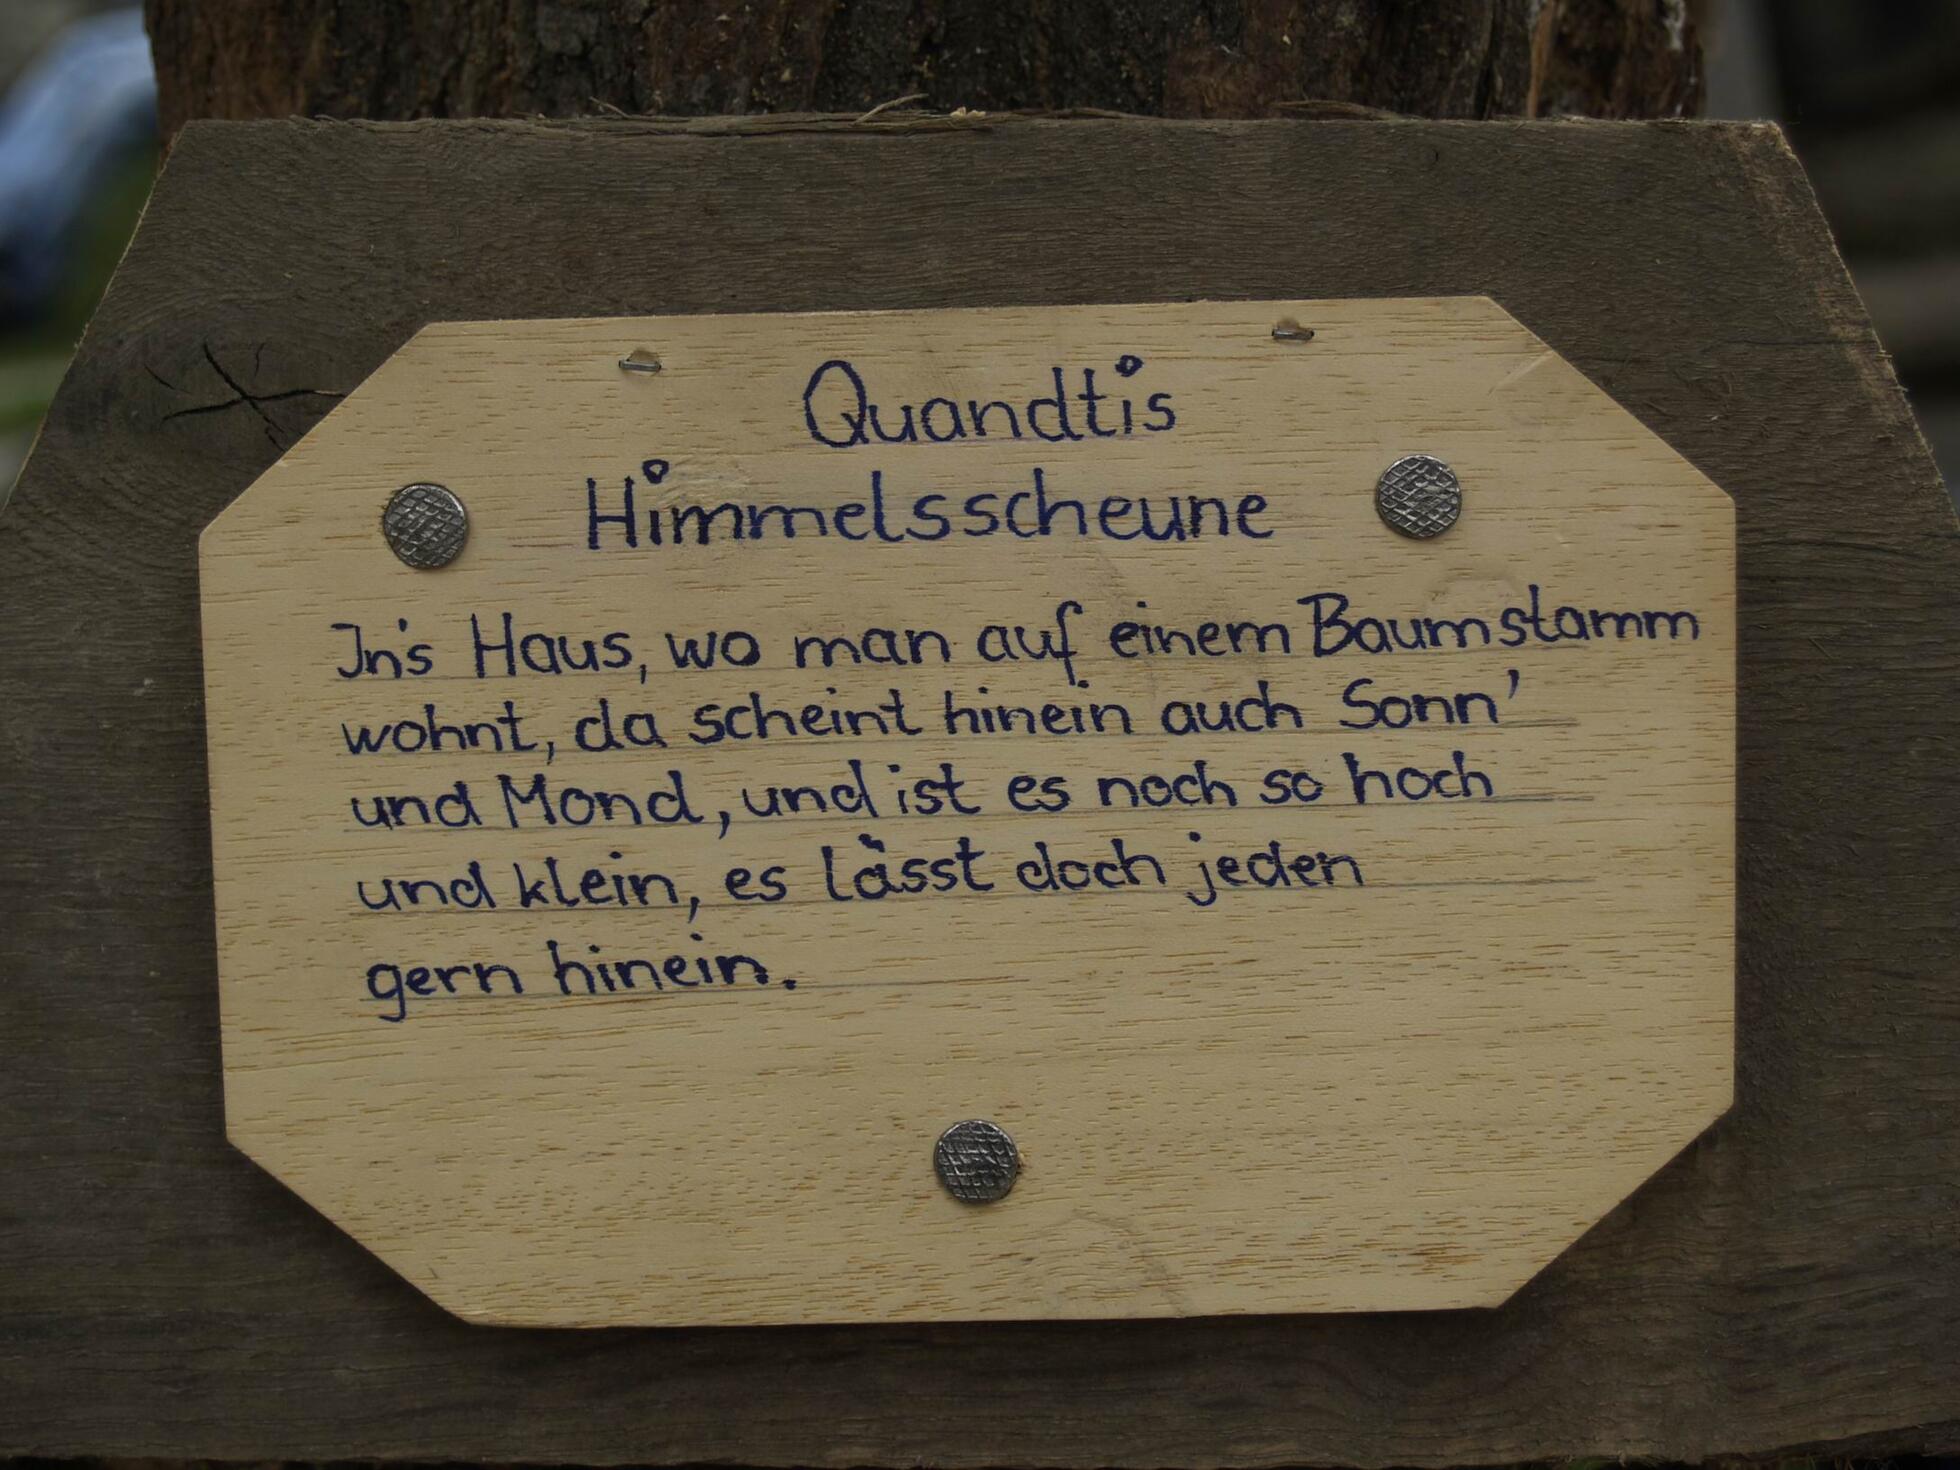 Quandtis
Himmelsscheune
In's Haus, wo man auf einem Baumstamm
wohnt, da scheint hinein auch Sonn'
und Mond, und ist es noch so hoch
und klein, es lässt doch jeden
gern hinein.